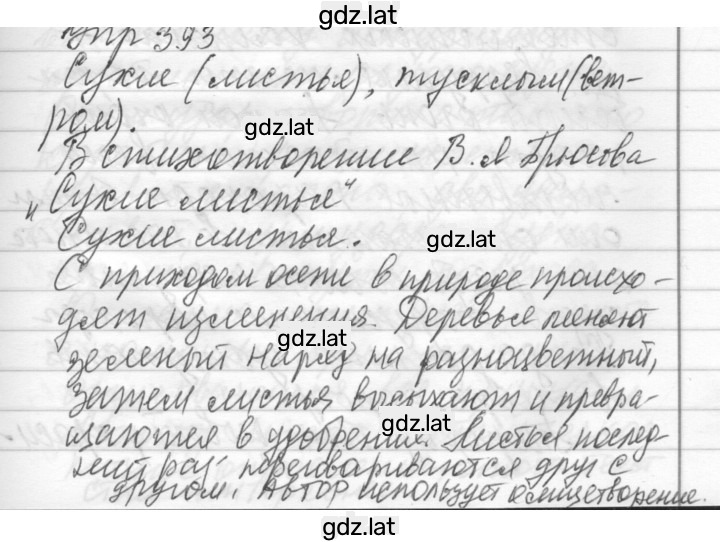 gdz.lat
Упр 393
Сухие (листья), тусклым (вет-
ром).
gdz.lat
В стихотворение В. Я Брюсова
„Сухие листья“
Сухие листья.
gdz.lat
С приходом осени в природе происхо-
дят изменения. Деревья меняют
gdz.lat
зеленый наряд на разноцветный,
Затем листья высыхают и превра-
gdz.lat
щаются в удобрения. Листья послед-
ний раз переговариваются друг с
другом. Автор использует олицетворение.
gdz.lat